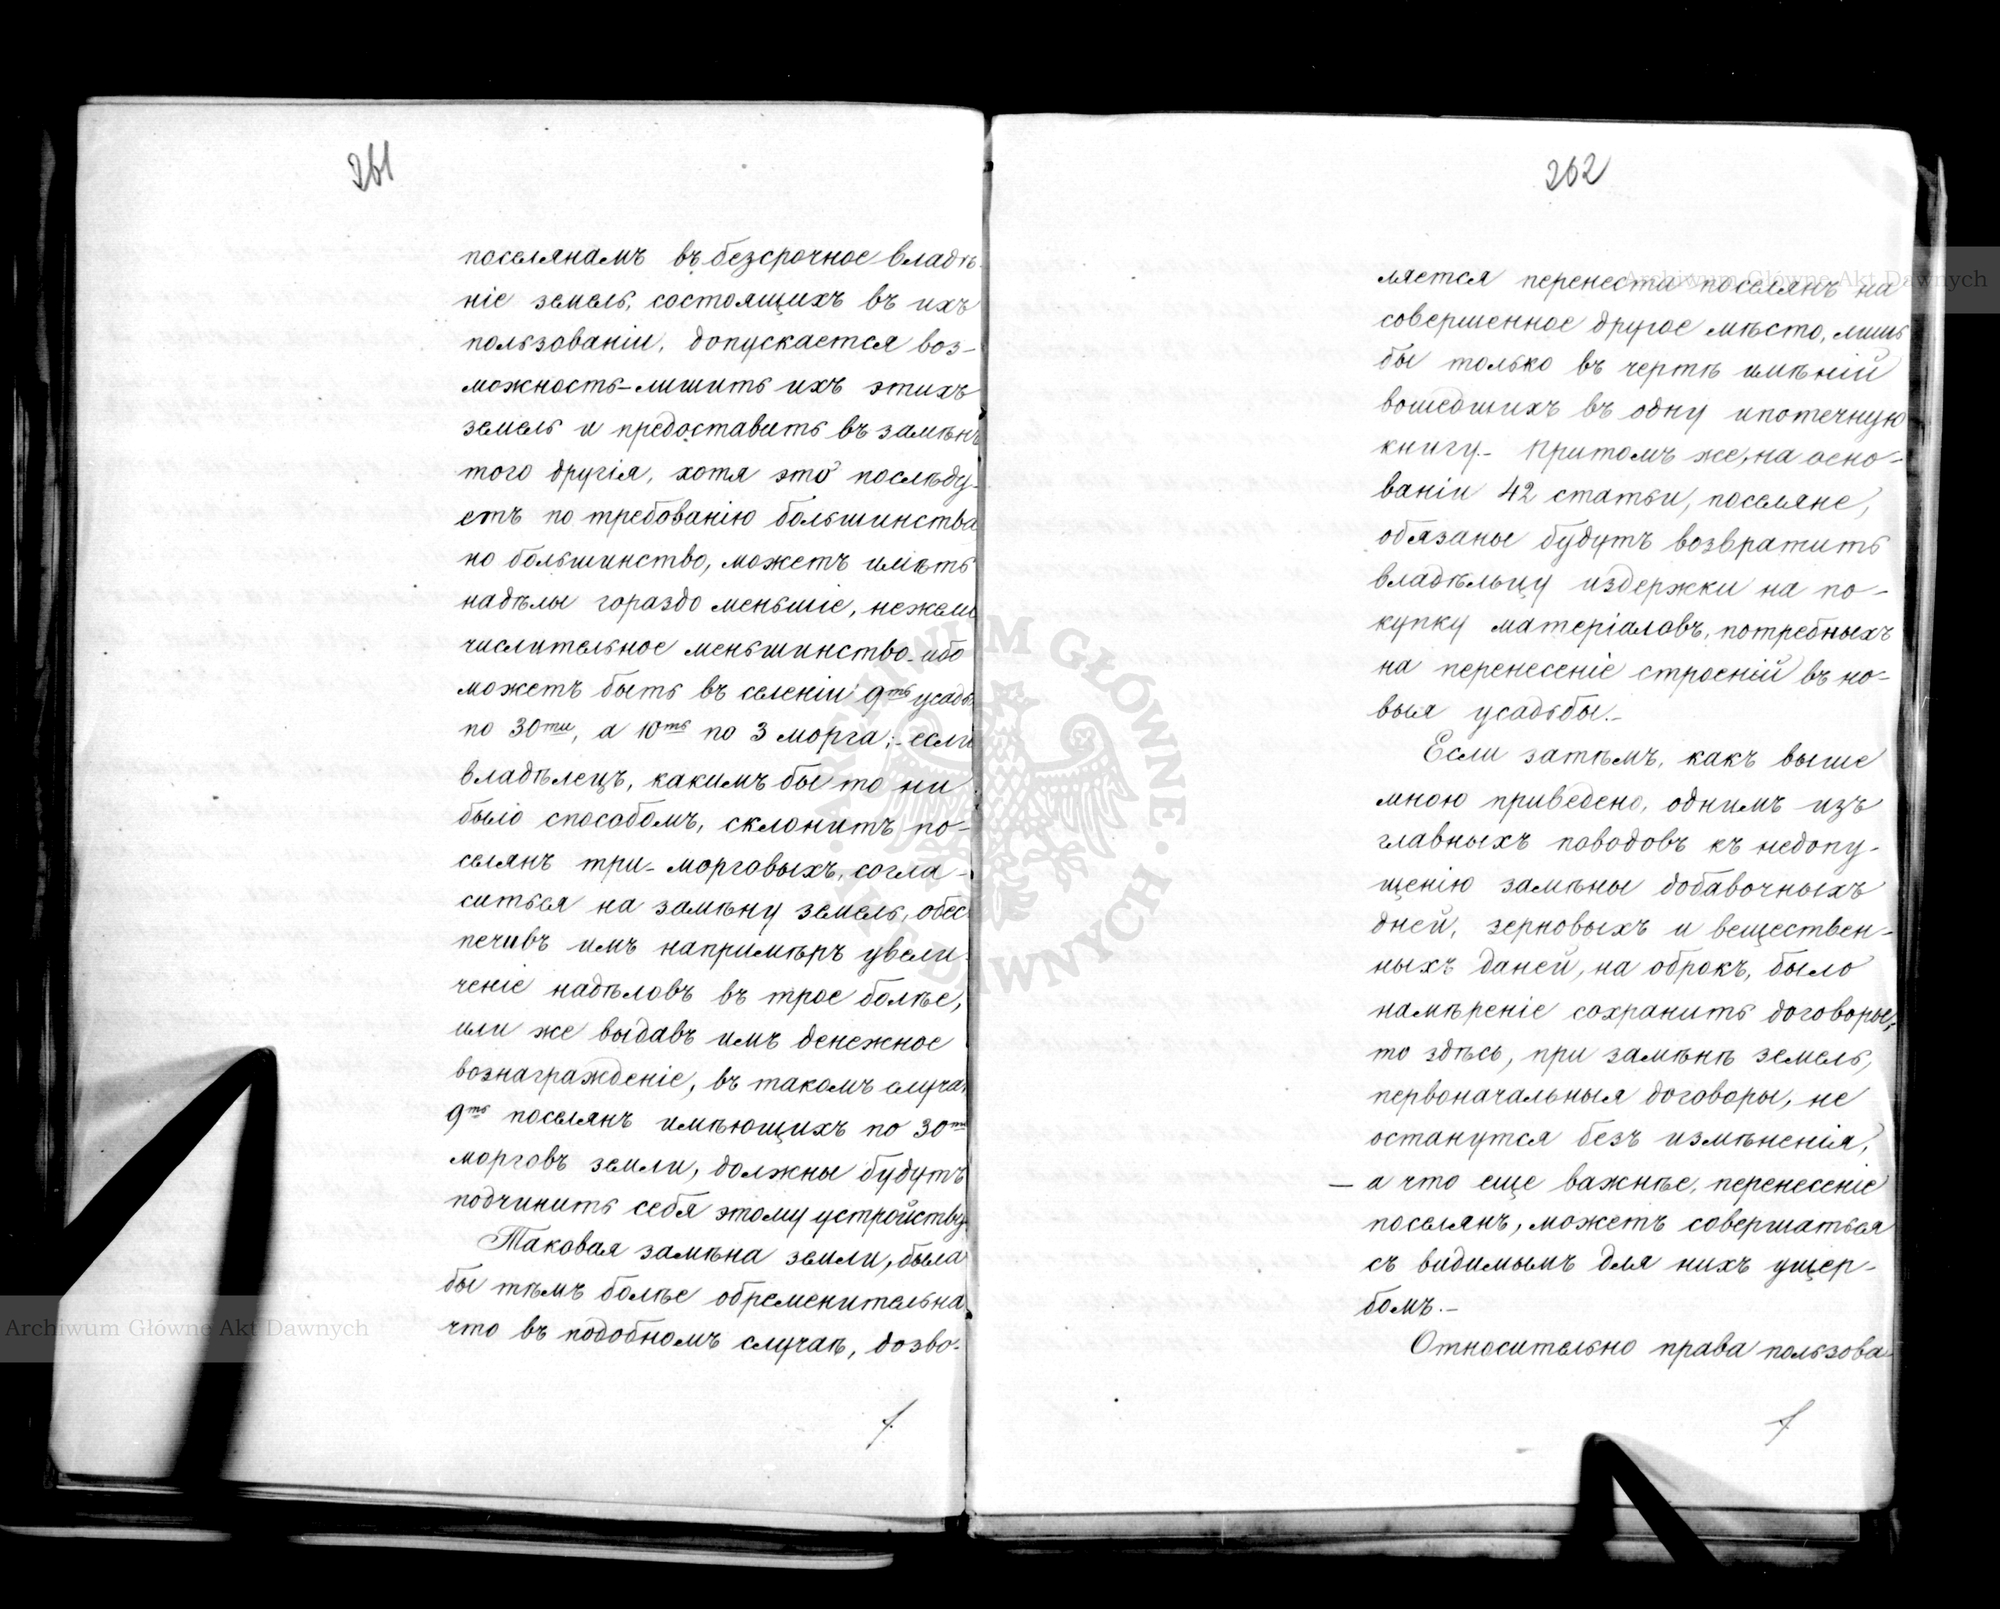 261
поселянамъ въ безсрочное владѣ-
ніе земель, состоящихъ въ ихъ
пользованіи, допускается воз-
можность - лишить ихъ этихъ
земель и предоставить въ замѣнъ
того другія, хотя это послѣду-
етъ по требованію большинства
но большинство, можетъ имѣть
надѣлы гораздо меньшіе, нежели
числительное меньшинство - ибо
можетъ быть въ селеніи 9ть усадьб
по 30ти, а 10ть по 3 морга; - если
владѣлецъ, какимъ бы то ни
было способомъ, склонитъ по-
селянъ три-морговыхъ, согла-
ситься на замѣну земель, обес-
печивъ имъ напримѣръ увели-
ченіе надѣловъ въ трое болѣе,
или же выдавъ имъ денежное
вознагражденіе, въ такомъ случаѣ
9ть поселянъ имѣющихъ по 30ти
морговъ земли, должны будутъ
подчинить себя этому устройству.
Таковая замѣна земли, была
бы тѣмъ болѣе обременительна
что въ подобномъ случаѣ, дозво-
262
ляется перенести поселянъ на
совершенное другое мѣсто, лишь
бы только въ чертѣ имѣній
вошедшихъ въ одну ипотечную
книгу. - Притомъ же, на осно-
ваніи 42 статьи, поселяне,
обязаны будутъ возвратить
владѣльцу издержки на по-
купку матеріаловъ, потребныхъ
на перенесеніе строеній въ но-
выя усадьбы. -
Если затѣмъ, какъ выше
мною приведено, однимъ изъ
главныхъ поводовъ къ недопу-
щенію замѣны добавочныхъ
дней, зерновыхъ и веществен-
ныхъ даней, на оброкъ, было
намѣреніе сохранить договоры,
то здѣсь, при замѣнѣ земель,
первоначальныя договоры, не
останутся безъ измѣненія,
- а что еще важнѣе, перенесеніе
поселянъ, можетъ совершаться
съ видимымъ для нихъ ущер-
бомъ. -
Относительно права пользова-
Archiwum Główne Akt Dawnych
Archiwum Główne Akt Dawnych
ARCHIWUM GŁÓWNE AKT DAWNYCH